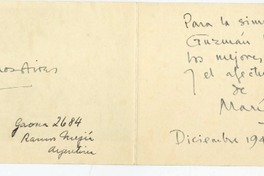 nos Aires
Gaona 2684
Ramos Mejía
Argentina
Para la sim
Guzmán
los mejores
y el afect
de
Marí
Diciembre 194